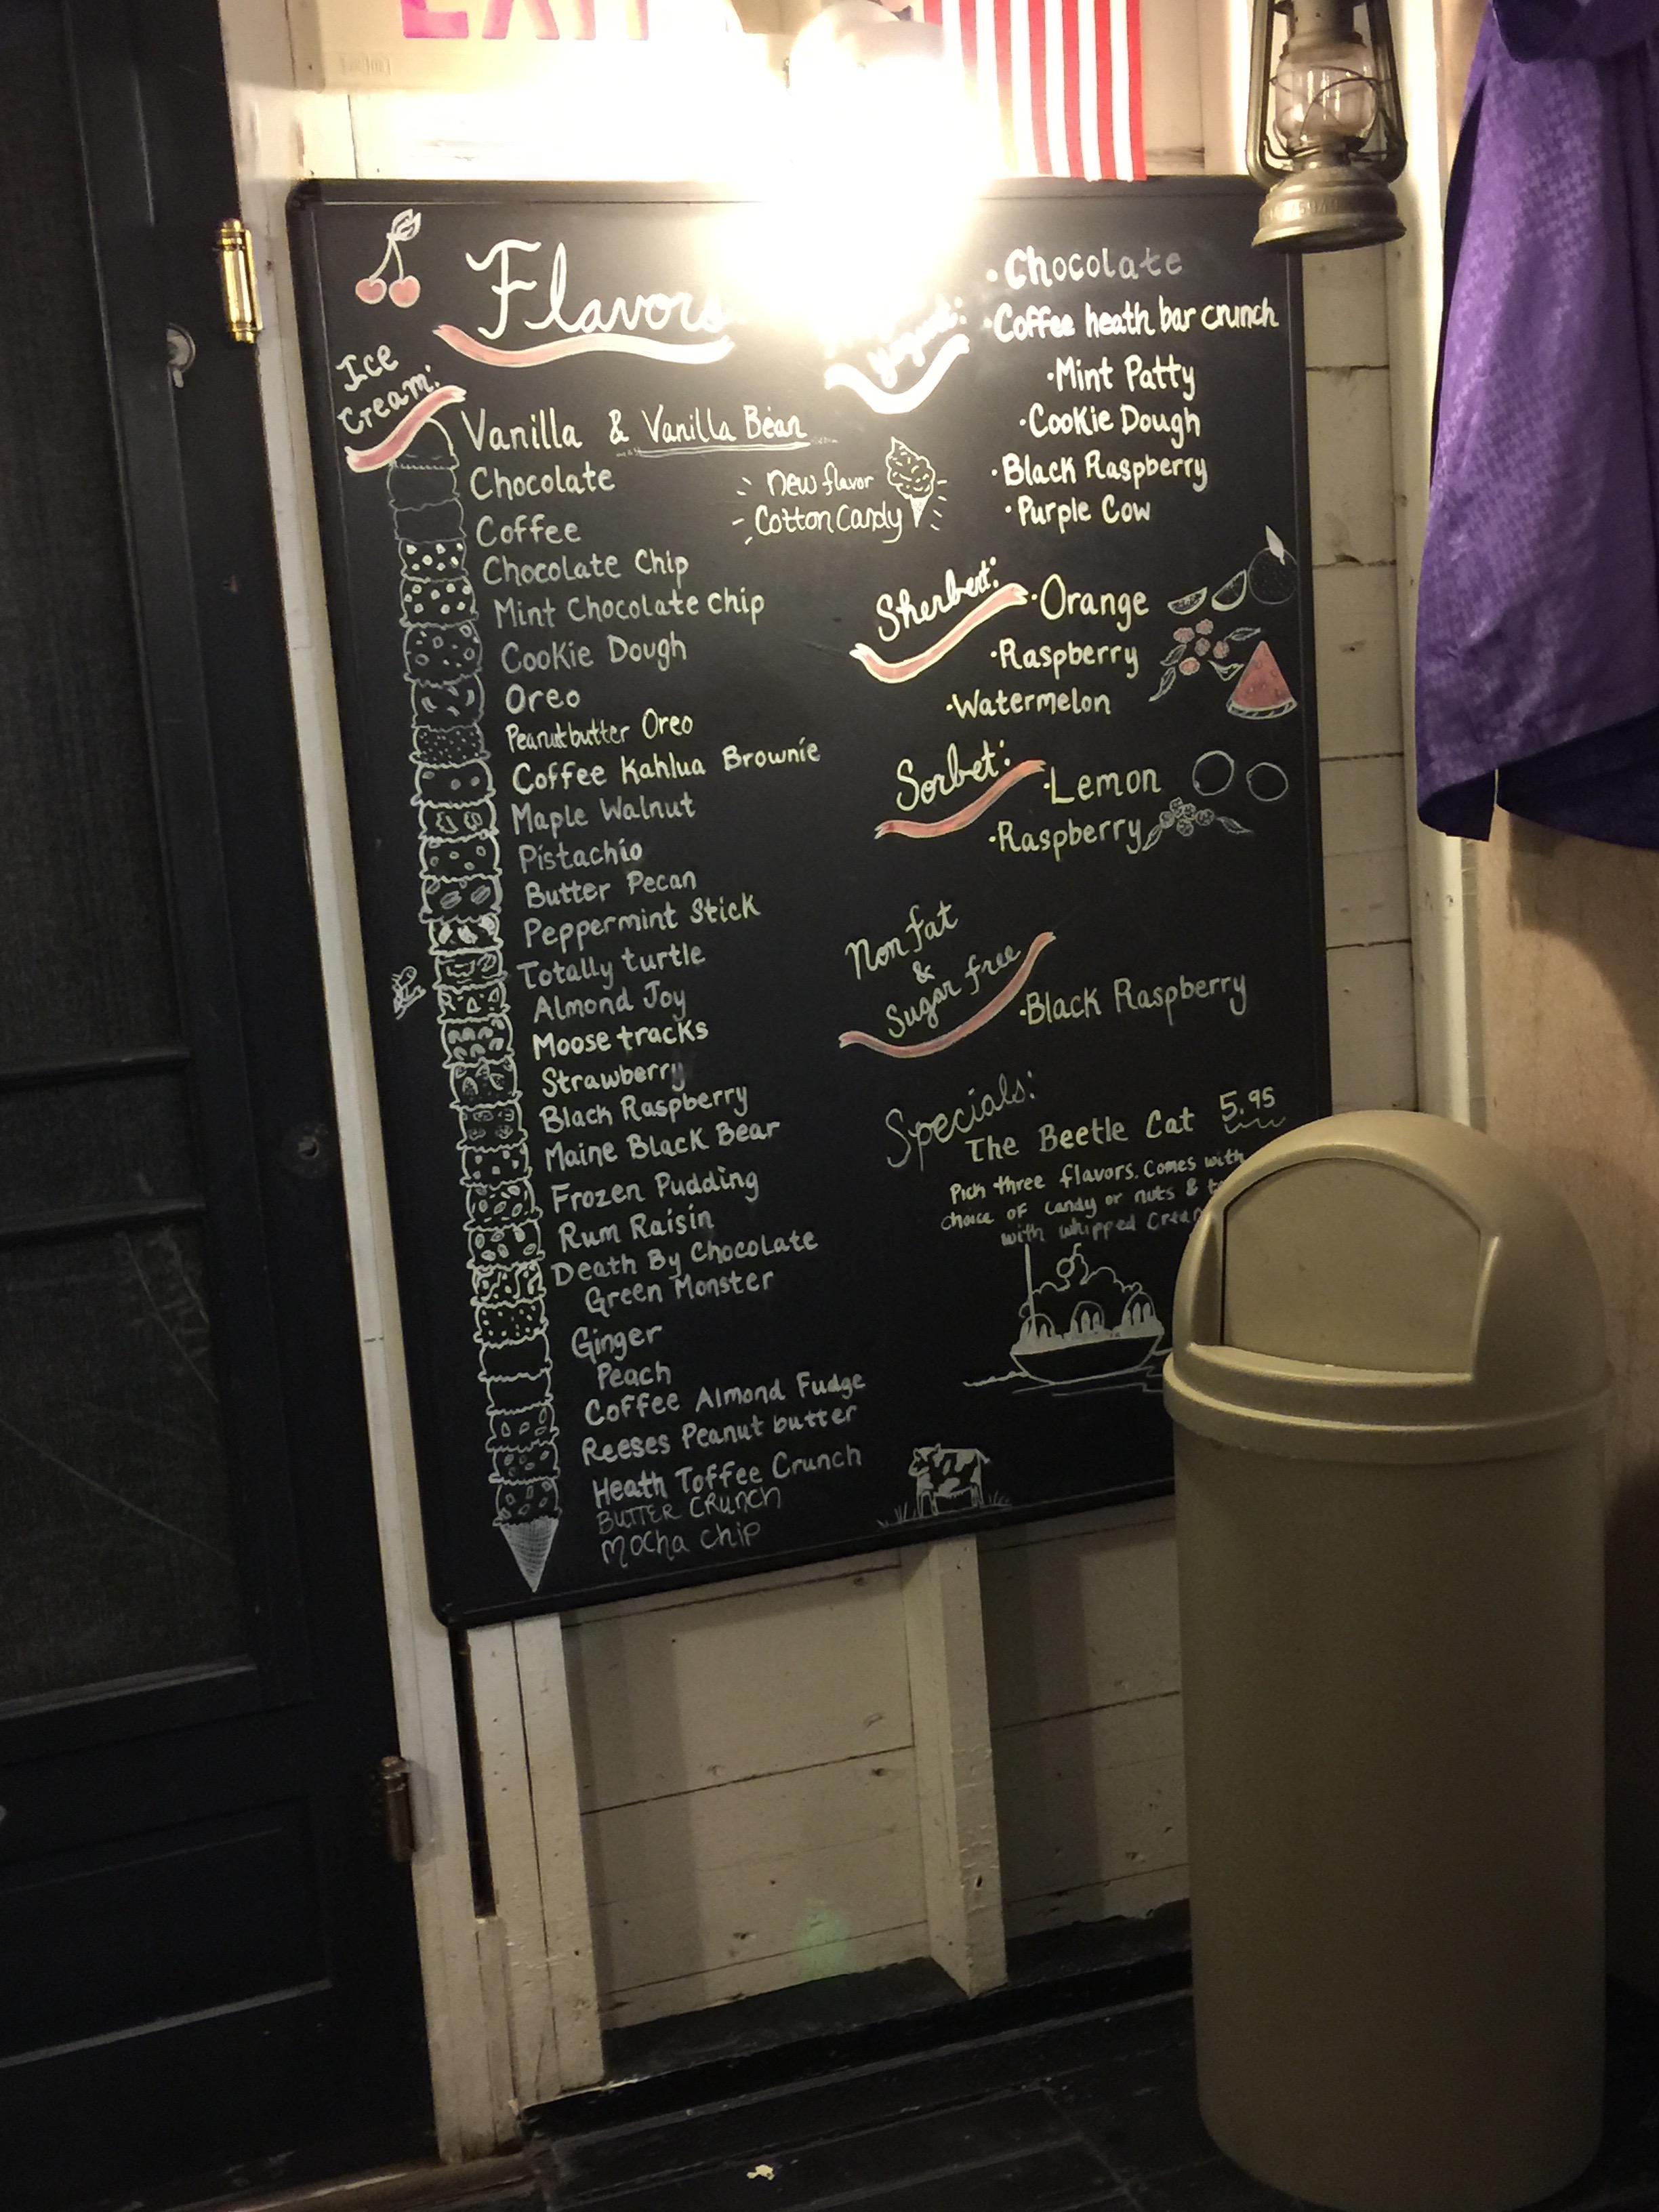 EXIT
Flavors
Ice
Cream:
Vanilla & Vanilla Bean
Chocolate
Coffee
Chocolate Chip
Mint Chocolate chip
Cookie Dough
Oreo
Peanutbutter Oreo
Coffee Kahlua Brownie
Maple Walnut
Pistachio
Butter Pecan
Peppermint Stick
Totally turtle
Almond Joy
Moose tracks
Strawberry
Black Raspberry
Maine Black Bear
Frozen Pudding
Rum Raisin
Death By Chocolate
Green Monster
Ginger
Peach
Coffee Almond Fudge
Reeses Peanut butter
Heath Toffee Crunch
BUTTER CRUNCH
Mocha chip
new flavor
Cotton Candy
yogurt:
• Chocolate
• Coffee heath bar crunch
• Mint Patty
• Cookie Dough
• Black Raspberry
• Purple Cow
Sherbert:
• Orange
• Raspberry
• Watermelon
Sorbet:
• Lemon
• Raspberry
Non fat
&
Sugar free
• Black Raspberry
Specials:
The Beetle Cat 5.95
Pick three flavors. Comes with
choice of candy or nuts &
with whipped